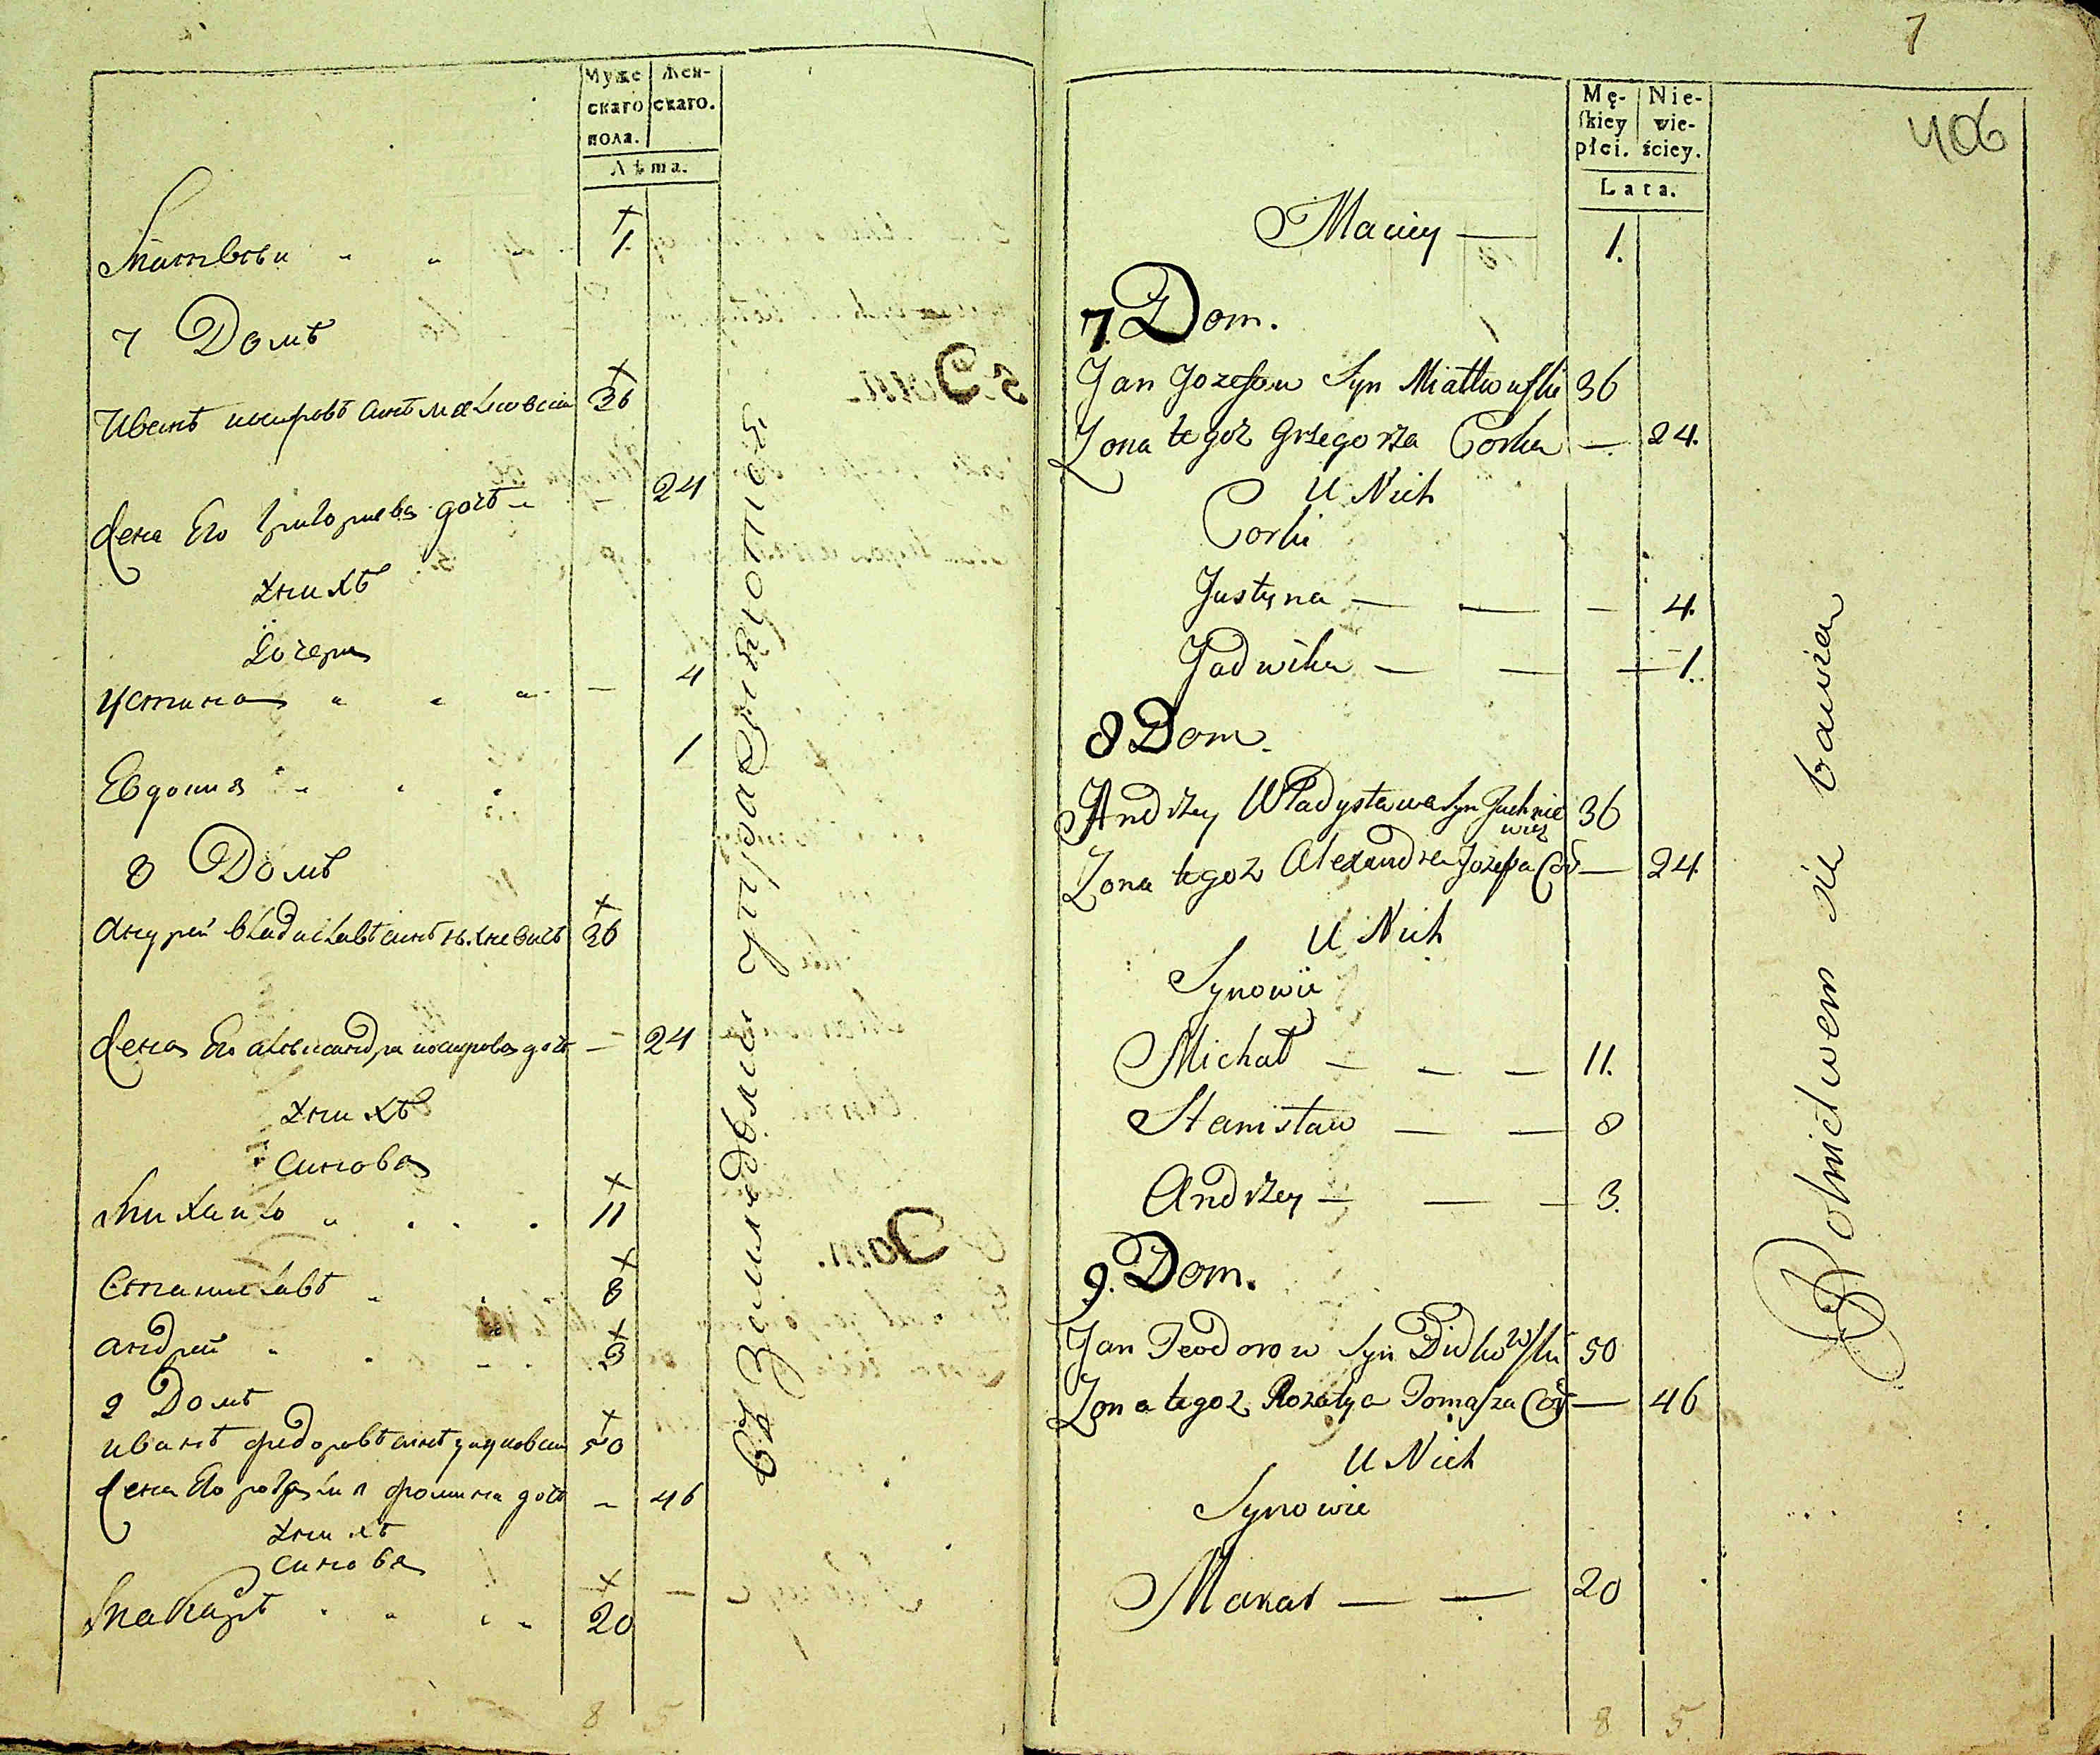 Муже
скаго
пола.
Жен-
скаго.
Лѣта.
Матвѣи 1.
7 Домъ
Иванъ иосифовъ синъ 36
Жена Его григориева дочь 24
У нихъ
Дочери
Устина 4
Евдокия 1
8 Домъ
Андрей владиславъ синъ 36
Жена Его александра иосифова дочь 24
У нихъ
Синовя
Михаило 11
Станиславъ 8
Андрей 3
9 Домъ
Иванъ Федоровъ синъ 50
Жена Его фомина дочь 46
У нихъ
Синовя
Макаръ 20
8 5
въ Земледѣлии упражняются
7
406
Mę-
skiey
płci.
Nie-
wie-
ściey.
Lata.
Maciey — 1.
7. Dom.
Jan Jozefow Syn 36
Zona tegoz Grzegorza Corka — 24.
U Nich
Corki
Justyna — — — 4.
Jadwika — — — 1.
8 Dom.
Andrzey Władysława Syn Juchnie 36
wicz
Zona tegoz Alexandra Jozefa Cor — 24.
U Nich
Synowie
Michał — — — 11.
Stanisław — — 8
Andrzey — — — 3.
9. Dom.
Jan Teodorow Syn Didkowski 50
Zona tegoz Rozalya Tomasza Cor — 46
U Nich
Synowie
Makar — — 20
8 5.
Rolnictwem sie bawia